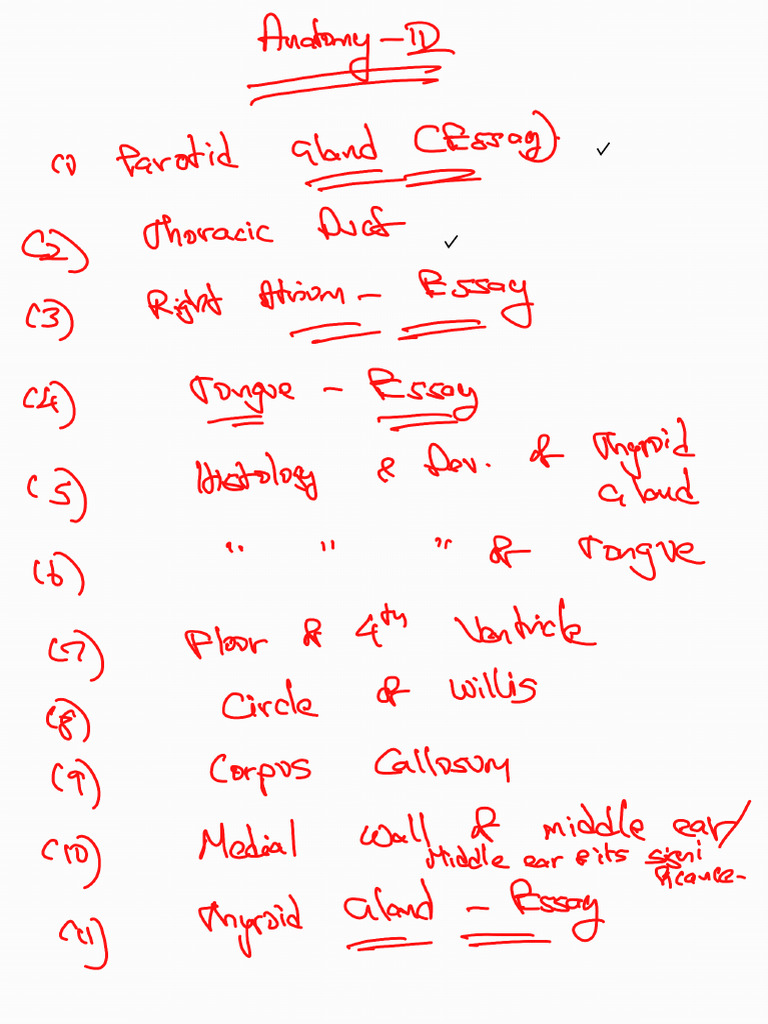 Anatomy - II
(1) Parotid Gland (Essay) ✓
(2) Thoracic Duct ✓
(3) Right Atrium - Essay
(4) Tongue - Essay
(5) Histology & Dev. of Thyroid
Gland
(6) " " " of Tongue
(7) Floor of 4th Ventricle
(8) Circle of Willis
(9) Corpus Callosum
(10) Medial wall of middle ear/
Middle ear & its signi
ficance-
(11) Thyroid Gland - Essay